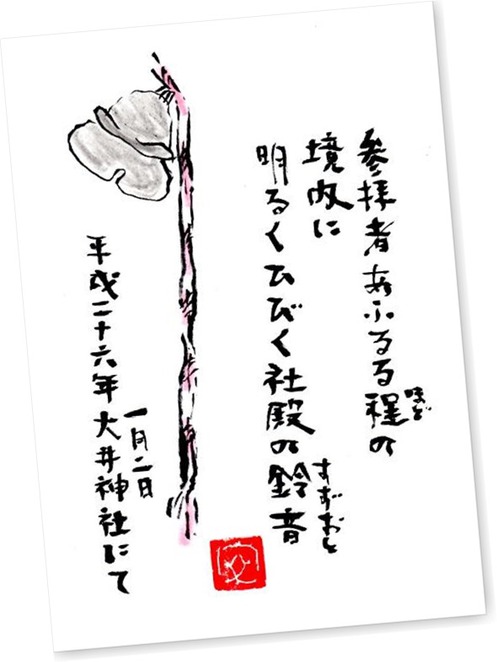 参拝者あふるる程の
ほど
境内に
明るくひびく社殿の鈴音
すずおと
平成二十六年 大井神社にて
一月二日